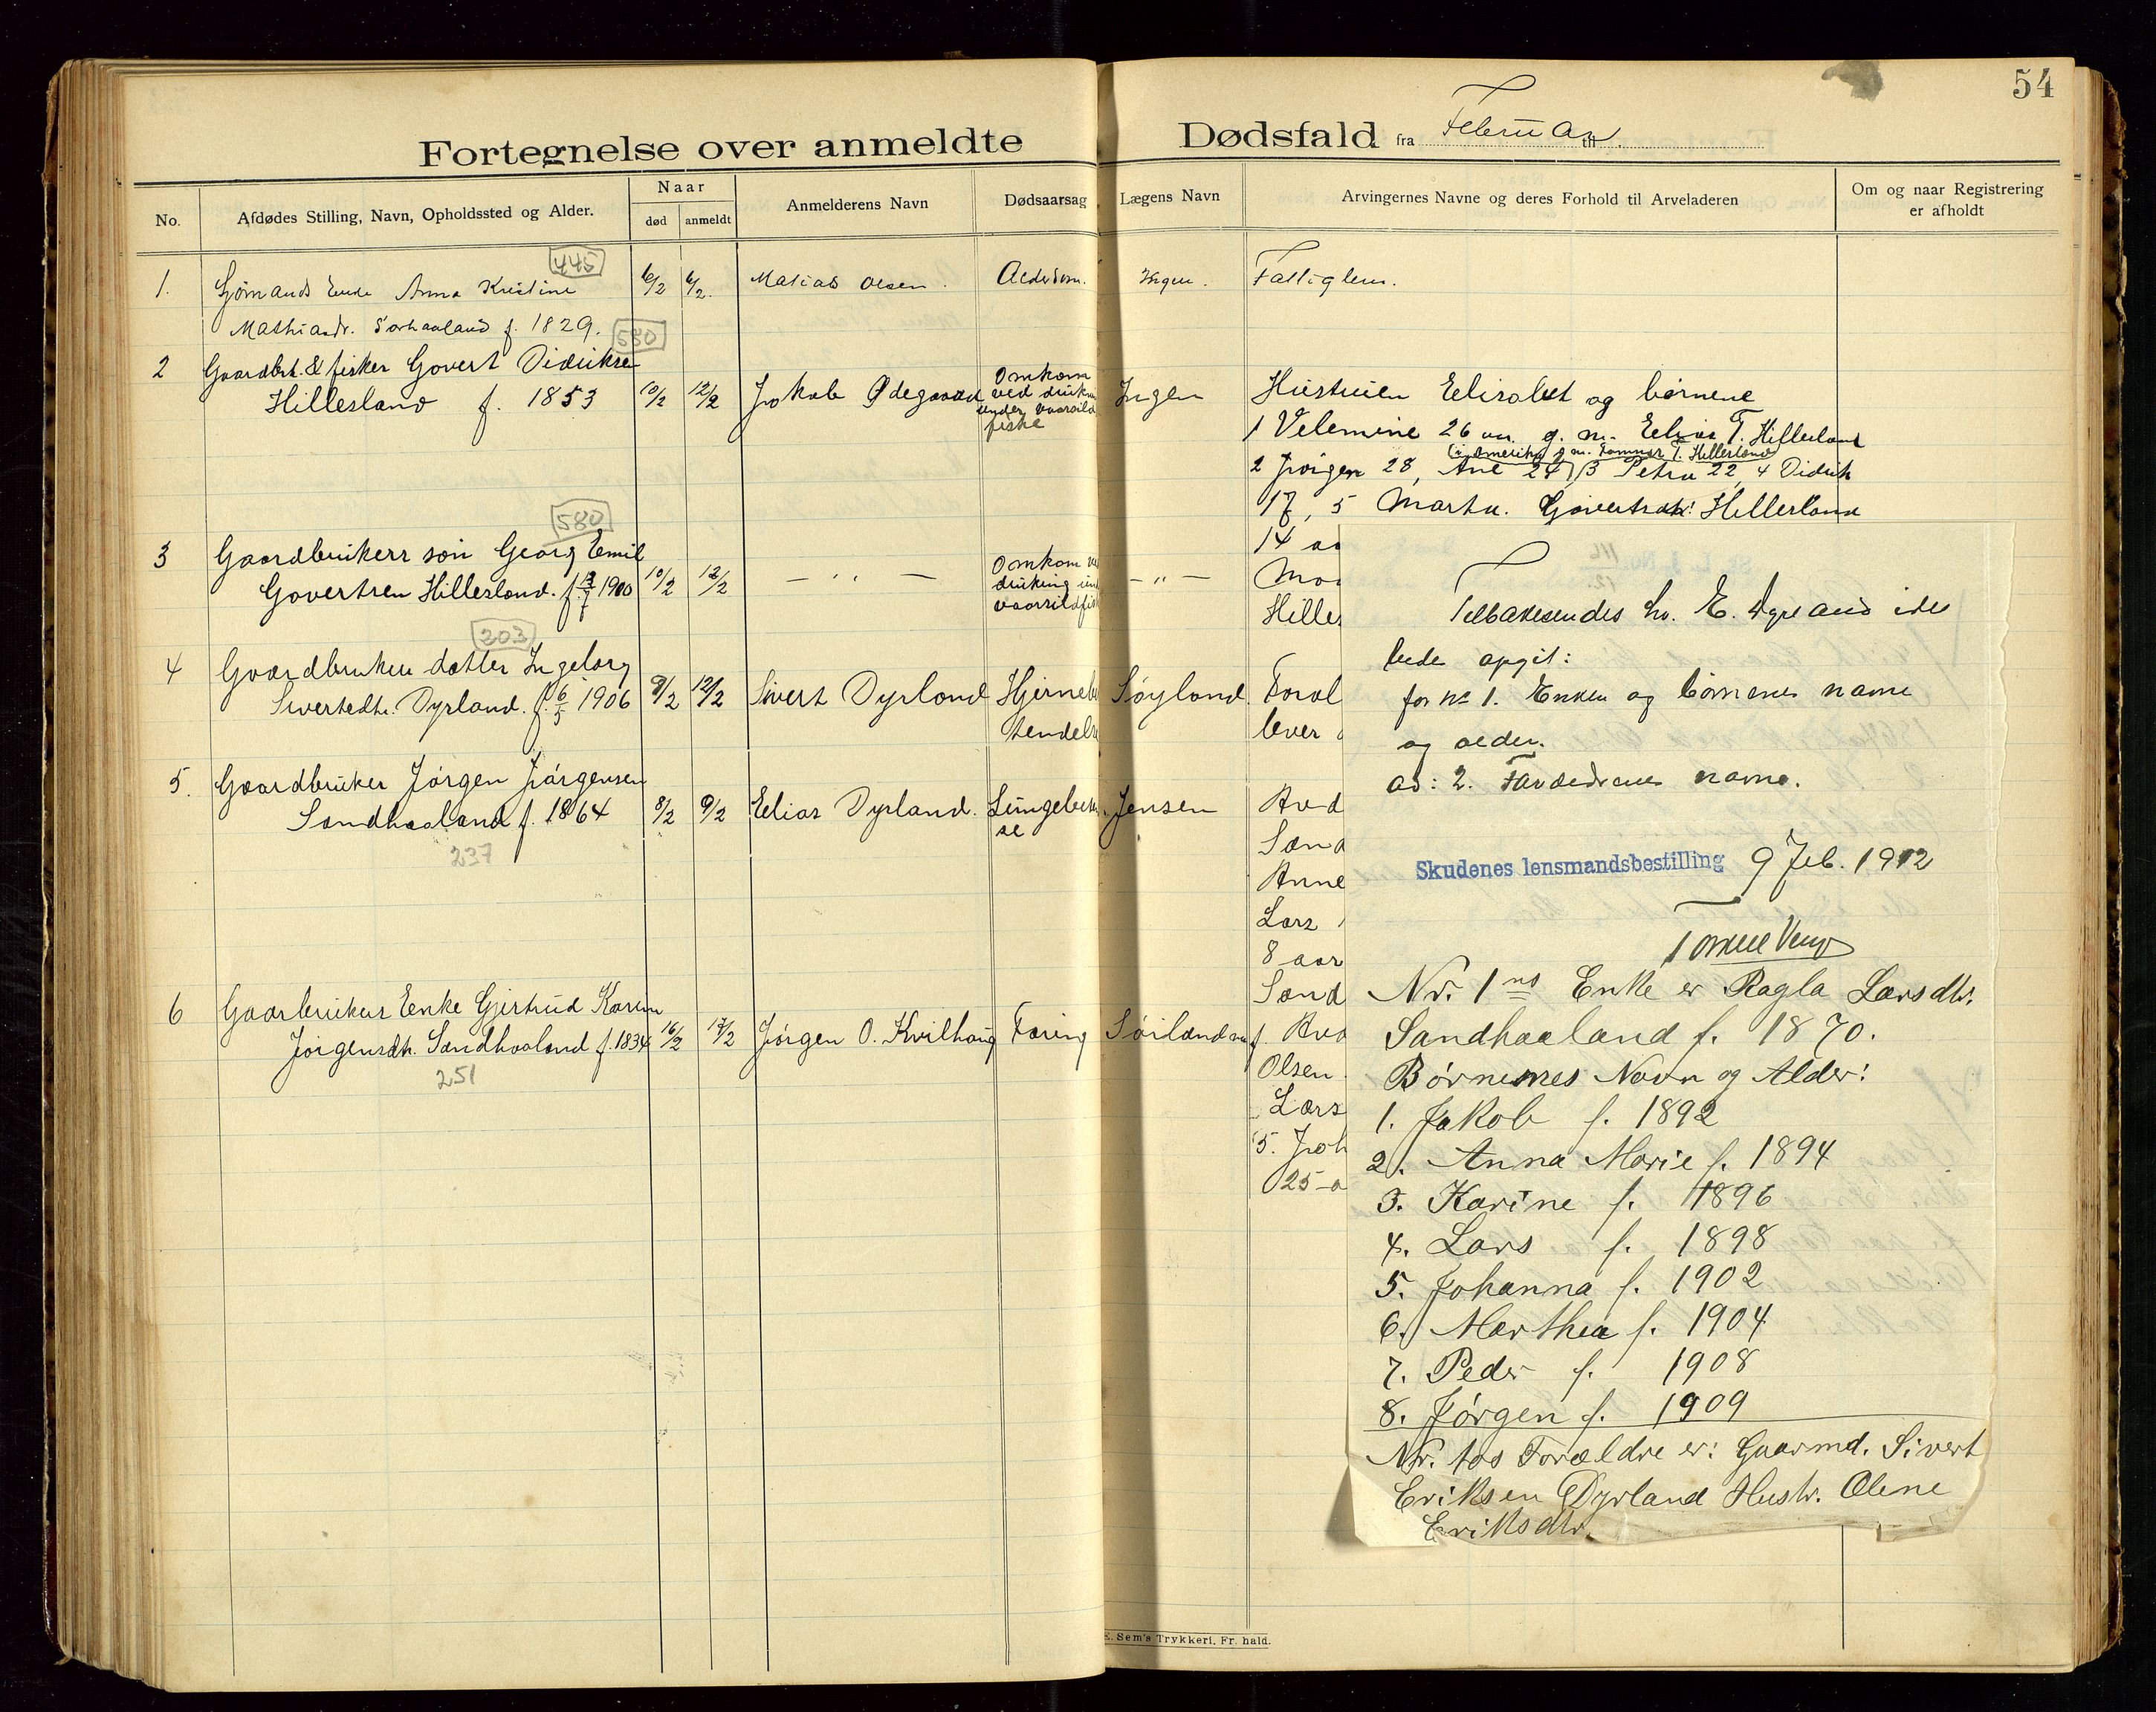 54
Fortegnelse over anmeldte Dødsfald fra Februar til
No.
Afdødes Stilling, Navn, Opholdssted og Alder.
Naar
død
anmeldt
Anmelderens Navn
Dødsaarsag
Lægens Navn
Arvingernes Navne og deres Forhold til Arveladeren
Om og naar Registrering
er afholdt
445
1. Sjømands Enke Anna Kristine 6/2 6/2. Matias Olsen. Alderdom. Ingen. Fattiglem.
Mathiasdr. Sørhaaland f. 1829.
580
2 Gaardbr. & fisker Govert Didriksen
Hillesland f. 1853 10/2 12/2 Jakob Ødegaard
Omkom
ved drukni
under vaarsild
fiske
Ingen
Hustruen Elisabet og børnene
1 Velemine 26 aar g. m. Elias T. Hillesland
(i Amerika g m. Tommas T. Hillesland
2 Jørgen 28, Ane 24) 3 Petra 22, 4 Didrik
17, 5 Marta. Govertsdtr. Hillesland
14 aa
580
3 Gaardbrukers søn Georg Emil
Govertsen Hillesland. f. 1900 10/2 12/2 — " —
Omkom ve
drukning un
vaarsildfis
— " —
Mo
Hilles
203
4 Gaardbruker datter Ingeborg
Sivertsdtr. Dyrland. f. 6/5 1906 9/2 12/2 Sivert Dyrland Hjernebe Søyland Foræl
tendelse
lever
5. Gaardbruker Jørgen Jørgensen
Sandhaaland f. 1864 8/2 9/2 Elias Dyrland. Lungebet Jensen
se
237
Avd
Sand
Anne
Lars
8 aar
Sand
6 Gaarbrukers Enke Gjertrud Karin
Jørgensdtr. Sandhaaland f. 1834 16/2 17/2 Jørgen O. Kvilhaug Tæring Søiland
251
Avd
Olsen
Lars
5. Joh
25 a
Tilbakesendes hr. E. Dyrland idet
bede opgit:
for nr 1. Enken og børnenes navne
og alder.
ad: 2. Forældrenes navne.
Skudenes lensmandsbestilling 9 Feb. 1912
Nr. 1ns Enke er Ragla Larsdtr.
Sandhaaland f. 1870.
Børnenes Navn og Alder:
1. Jakob f. 1892
2. Anna Marie f. 1894
3. Karine f. 1896
4. Lars f. 1898
5. Johanna f. 1902
6. Marthea f. 1904
7. Peder f. 1908
8. Jørgen f. 1909
Nr. tos Forældre er: Gaarmd. Sivert
Eriksen Dyrland Hustr. Olene
Eriksdtr.
E. Sem's Trykkeri, Fr. hald.